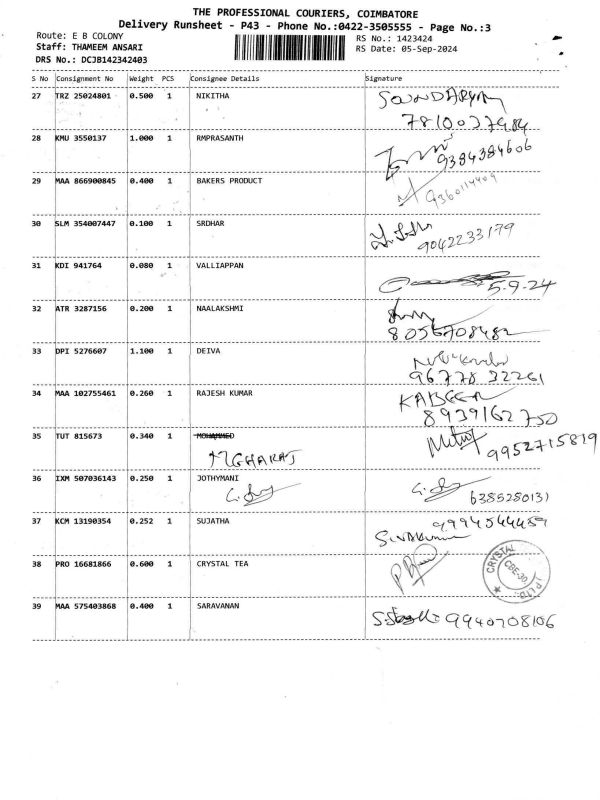 THE PROFESSIONAL COURIERS, COIMBATORE
Delivery Runsheet - P43 - Phone No.:0422-3505555 - Page No.:3
Route: E B COLONY
RS No.: 1423424
Staff: THAMEEM ANSARI
RS Date: 05-Sep-2024
DRS No.: DCJB142342403
S No Consignment No Weight PCS Consignee Details Signature
27 TRZ 25024801 0.500 1 NIKITHA
28 KMU 3550137 1.000 1 RMPRASANTH
9384384606
29 MAA 866900845 0.400 1 BAKERS PRODUCT
9360114409
30 SLM 354007447 0.100 1 SRDHAR
9042233179
31 KDI 941764 0.080 1 VALLIAPPAN
5-9-24
32 ATR 3287156 0.200 1 NAALAKSHMI
8056708482
33 DPI 5276607 1.100 1 DEIVA
96778 32261
34 MAA 102755461 0.260 1 RAJESH KUMAR KABEER
8939162750
35 TUT 815673 0.340 1 MOHAMMED
9952715819
36 IXM 507036143 0.250 1 JOTHYMANI
6385280131
37 KCM 13190354 0.252 1 SUJATHA
9994544489
38 PRO 16681866 0.600 1 CRYSTAL TEA
CRYSTAL
CBE-30
39 MAA 575403868 0.400 1 SARAVANAN
9940708106